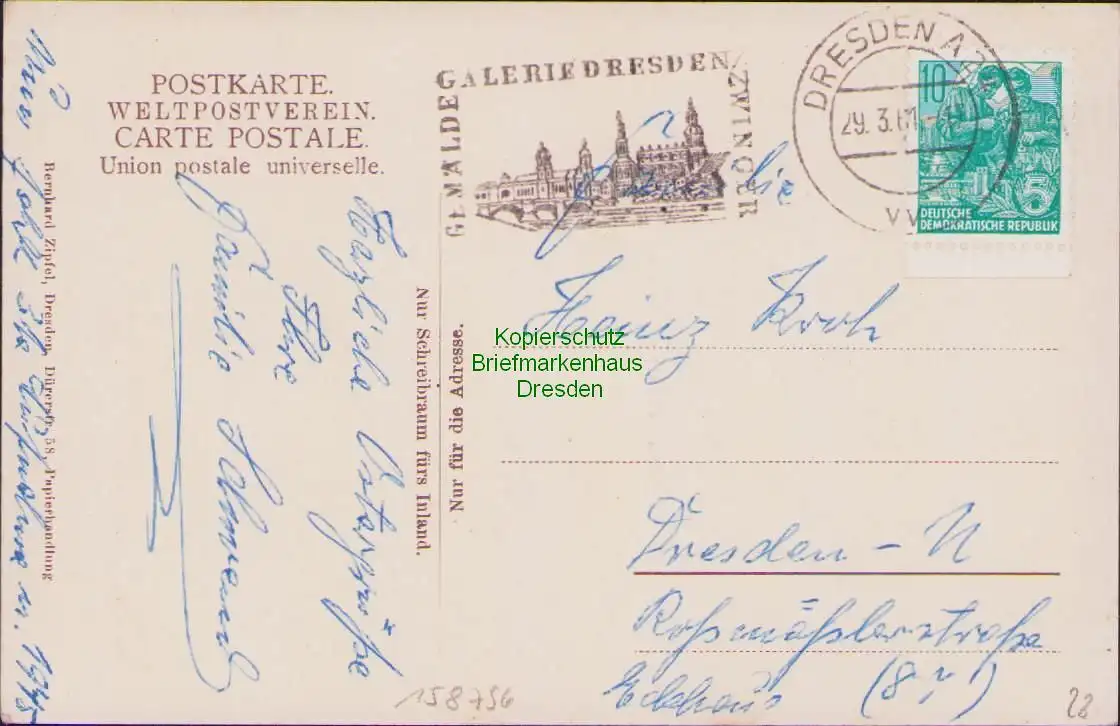 POSTKARTE.
WELTPOSTVEREIN.
CARTE POSTALE.
Union postale universelle.
GEMÄLDEGALERIE DRESDEN ZWINGER
DRESDEN A
29.3.61
10
5
DEUTSCHE
DEMOKRATISCHE REPUBLIK
Familie
Heinz Kroh
Dresden - N
Roßmäßlerstraße
Eckhaus
Herzliche Ostergrüße
Ihre
Familie
Nur Schreibraum fürs Inland.
Nur für die Adresse.
Bernhard Zipfel, Dresden, Dürerstr. 58, Papierhandlung
Kopierschutz
Briefmarkenhaus
Dresden
158756
22